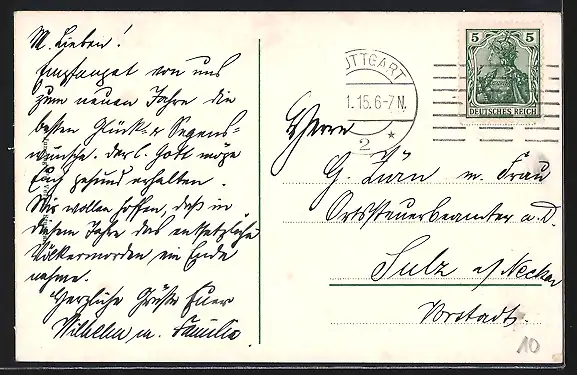 M. Lieben!
Empfanget von uns
zum neuen Jahre die
besten Glück- & Segens-
wünsche. der l. Gott möge
Euch gesund erhalten.
Wir wollen hoffen, daß in
diesem Jahre das entsetzliche
Völkermorden ein Ende
nehme.
Herzliche Grüße Euer
Wilhelm u. Familie.
TTGART
1.15.6-7N.
* 2
5 5
DEUTSCHES REICH
Herrn
G. Zürn m. Frau
Ortssteuerbeamter a. D.
Sulz a/ Neckar
Vorstadt.
10